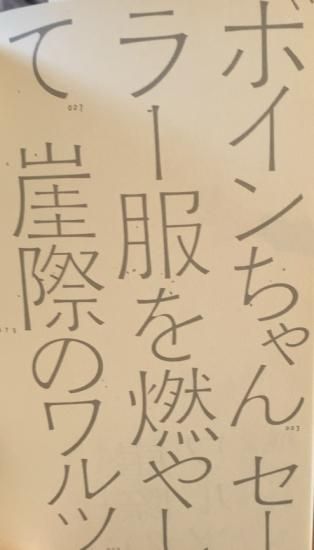 ボインちゃん 003 セー
ラー服を燃やし
て 027 崖際のワルツ